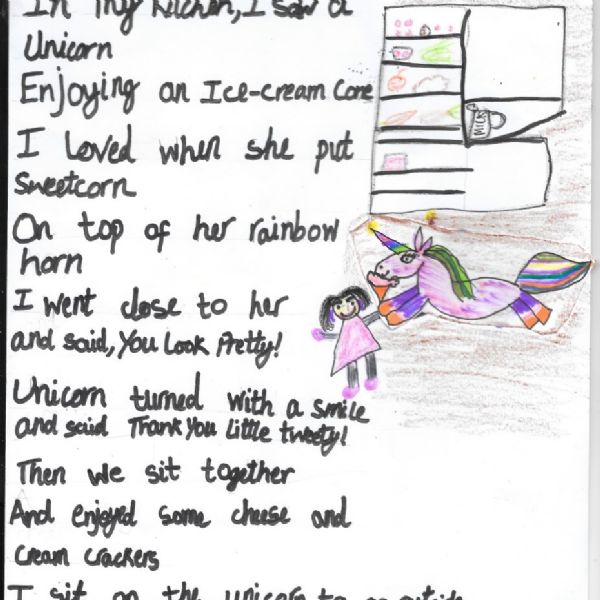 In my kitchen, I saw a
Unicorn
Enjoying an Ice-cream Cone
I Loved when she put
sweetcorn
On top of her rainbow
horn
I went close to her
and said, You Look Pretty!
Unicorn turned with a smile
and said Thank You Little tweety!
Then we sit together
And enjoyed some cheese and
cream crackers
I sit on the unicorn to go outside
MILK